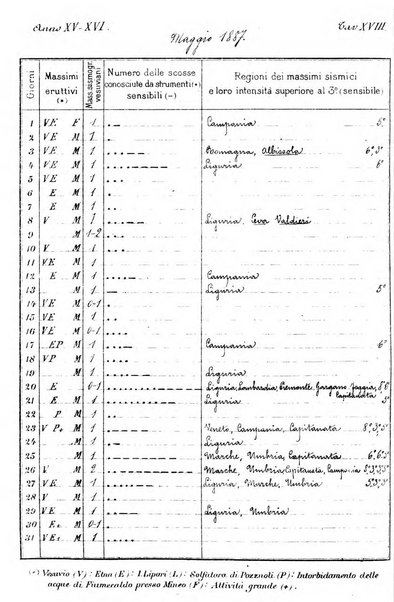 Anno XV-XVI. Tav XVIII
Maggio 1887.
Giorni Massimi eruttivi (*) Mass. sismogr. vesuviani Numero delle scosse conosciute da strumenti (•) sensibili (–) Regioni dei massimi sismici e loro intensità superiore al 3º (sensibile)
1 VE F 1 Campania 5º
2 VE M 1
3 VE M 1 Romagna, Albissola 6º,3º
4 VE M 1 Liguria 6º
5 VE M 1
6 E M 1
7 E M 1
8 V M 1 Liguria, Ceva Valdieri
9 M 1-2
10 V M 1
11 VE M 1
12 E M 1 Campania
13 M 1 Liguria 5º
14 VE M 0-1
15 VE M 1
16 VE M 0-1
17 EP M 1 Campania 6º
18 VP M 1
19 M 1 Liguria
20 E 0-1 Liguria, Lombardia, Piemonte, Gargano, Foggia, Capitanata
21 E M 1 Liguria 5º
22 P M 1
23 V P M 1 Veneto, Campania, Capitanata
24 M 1 Liguria
25 M 1 Marche, Umbria, Capitanata
26 V M 2 Marche, Umbria, Capitanata, Campania
27 VE M 1 Liguria, Marche, Umbria
28 V M 1
29 VE M 1 Umbria
30 M 0-1
31 M 1
(*) Vesuvio (V): Etna (E): I. Lipari (L): Solfatara di Pozzuoli (P): Intorbidamento delle
acque di Fiumeraldo presso Mineo (F): Attività grande (•).